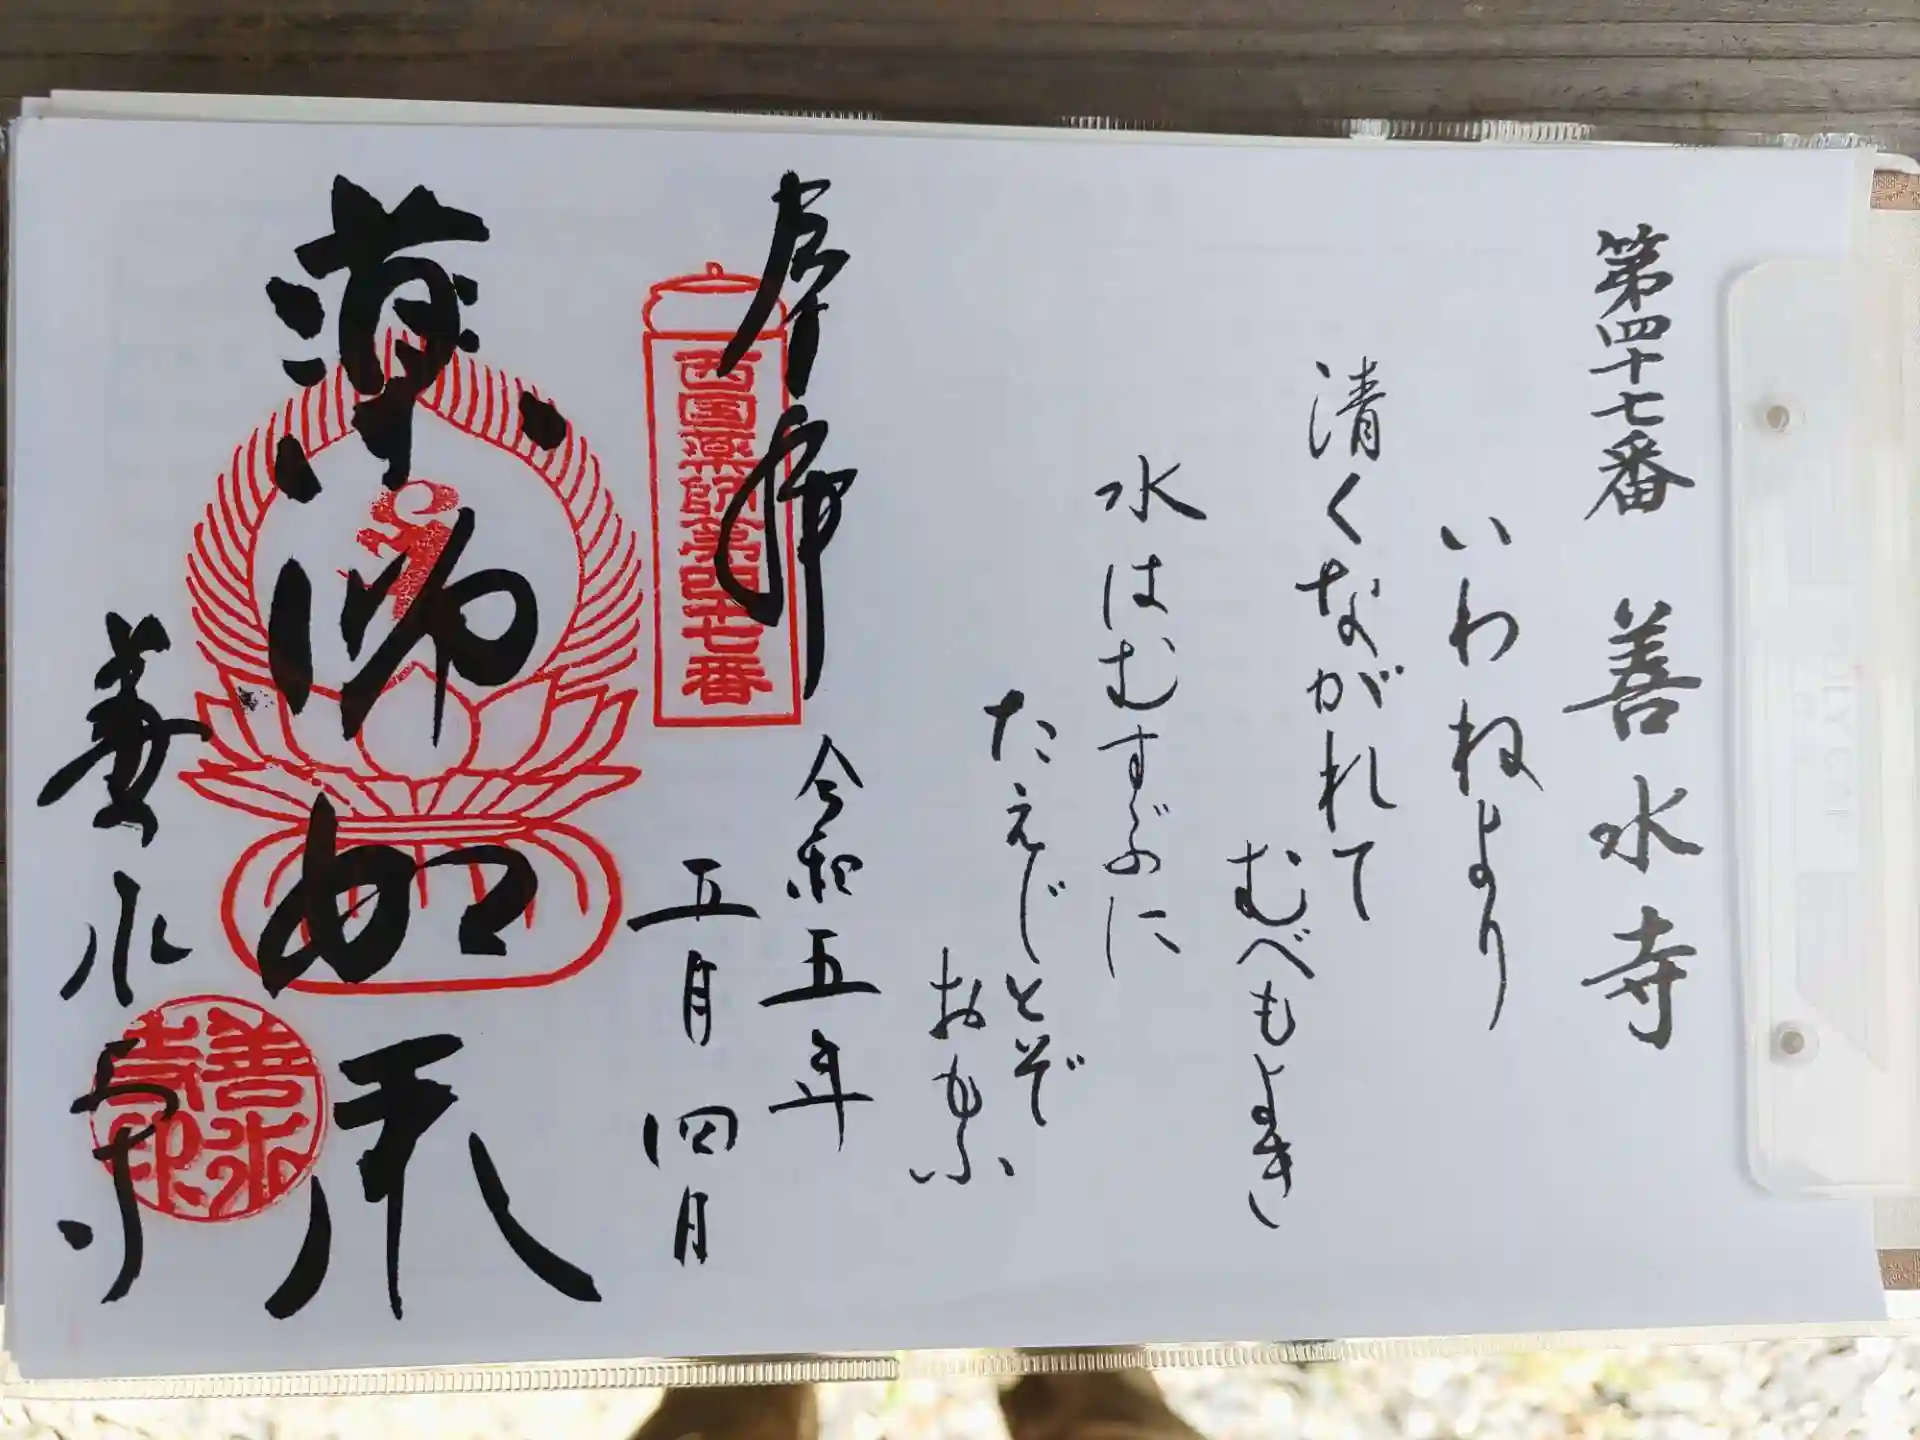 第四十七番 善水寺
いわねより
清くながれて
むべもよき
水はむすぶに
たえじとぞ
おもふ
奉拝
西国薬師第四十七番
令和五年
五月四日
薬師如来
善水寺
善水寺印